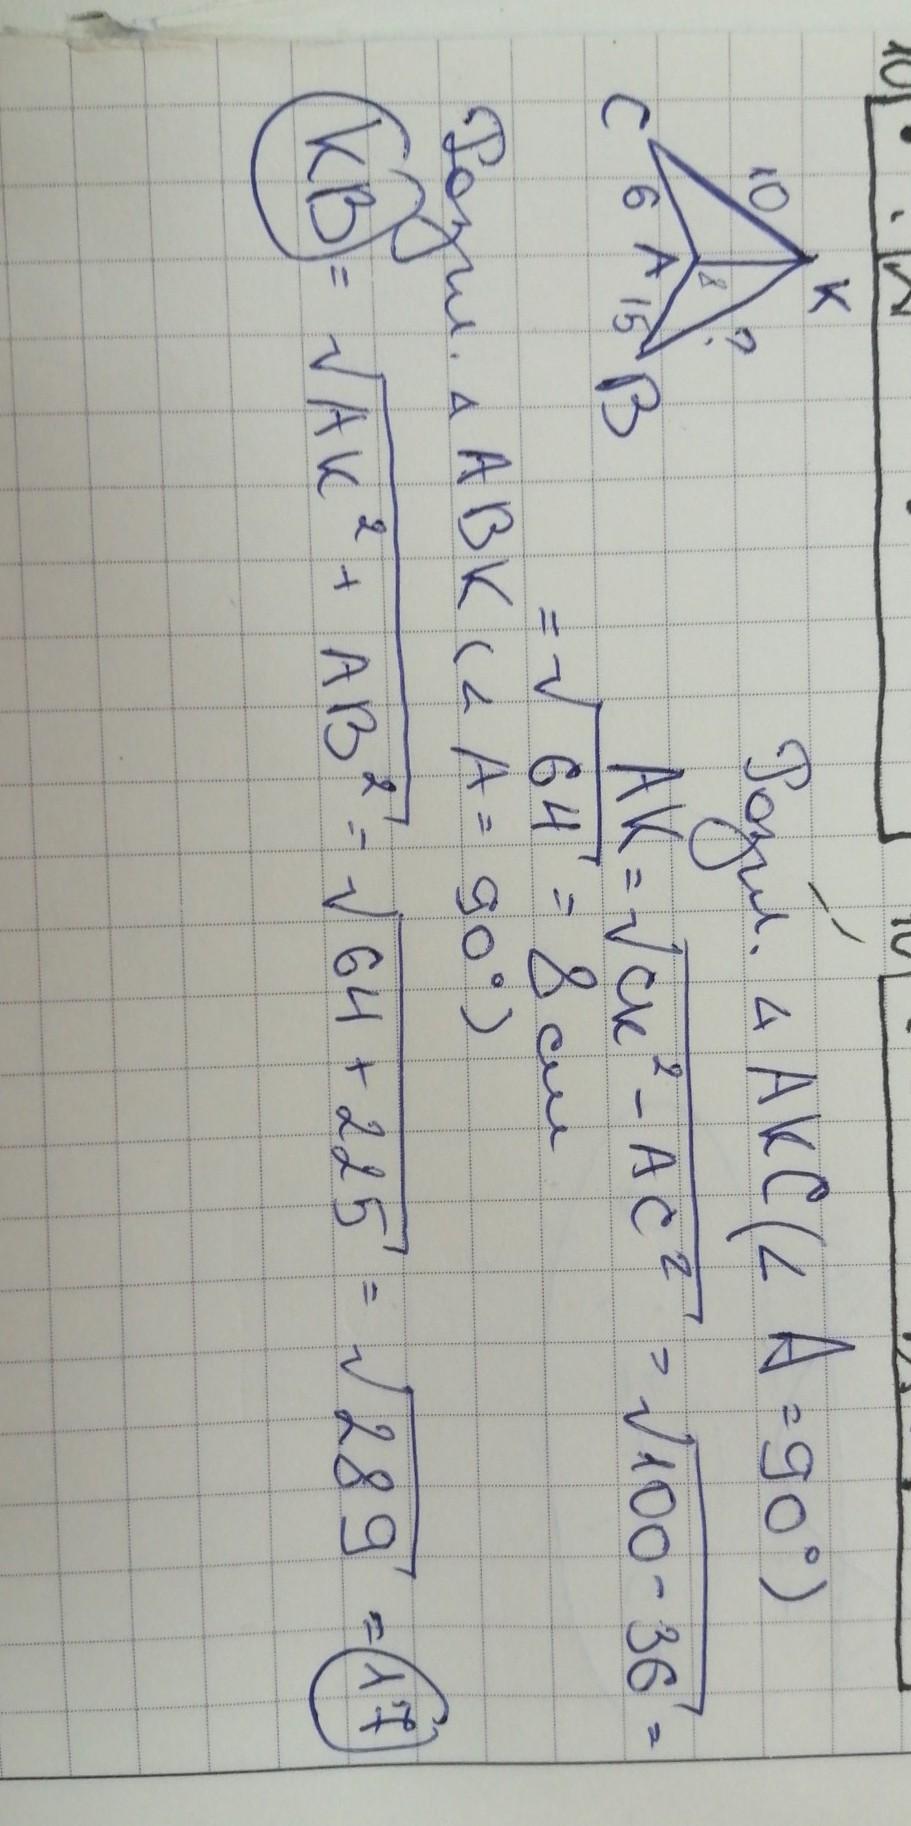 10
10
K
10
?
8
C 6 A 15 B
Розгл. △ AKC (∠ A = 90°)
AK = √CK² - AC² = √100 - 36 =
= √64 = 8 см
Розгл. △ ABK (∠ A = 90°)
KB = √AK² + AB² = √64 + 225 = √289 = 17